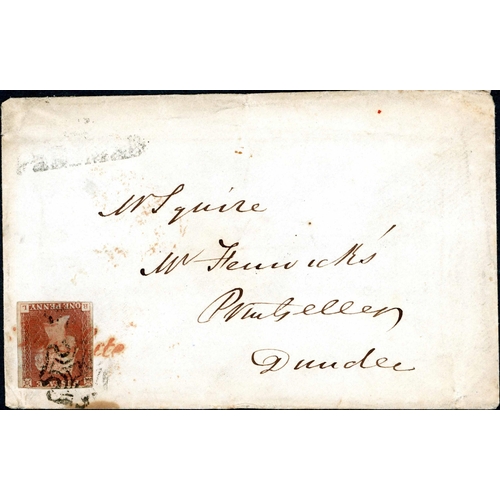 Mr Squire
Mr Fenwick's
Printseller
Dundee
ONE PENNY